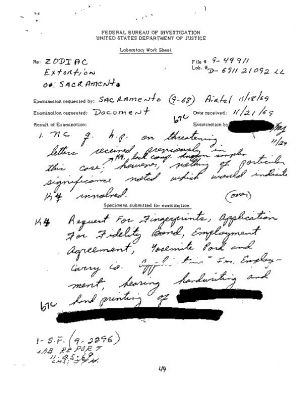 FEDERAL BUREAU OF INVESTIGATION
UNITED STATES DEPARTMENT OF JUSTICE
Laboratory Work Sheet
Re: ZODIAC File # 9-49911
EXTORTION Lab. # D-691121092 LL
OO: SACRAMENTO
Examination requested by: SACRAMENTO (9-68) Airtel 11/18/69
Examination requested: DOCUMENT Date received: 11/21/69
Result of Examination: Examination by:
1. NC of h.p. on threatening
letters received previously in
this case, however, nothing of particular
significance noted which would indicate
K4 involved. (over)
Specimens submitted for examination
K4 Request For Fingerprints, Application
For Fidelity Bond, Employment
Agreement, Yosemite Park and
Curry Co. Application For Employ-
ment, bearing handwriting and
b7C hand printing of
1- S.F. (9-2296)
LAB REPORT